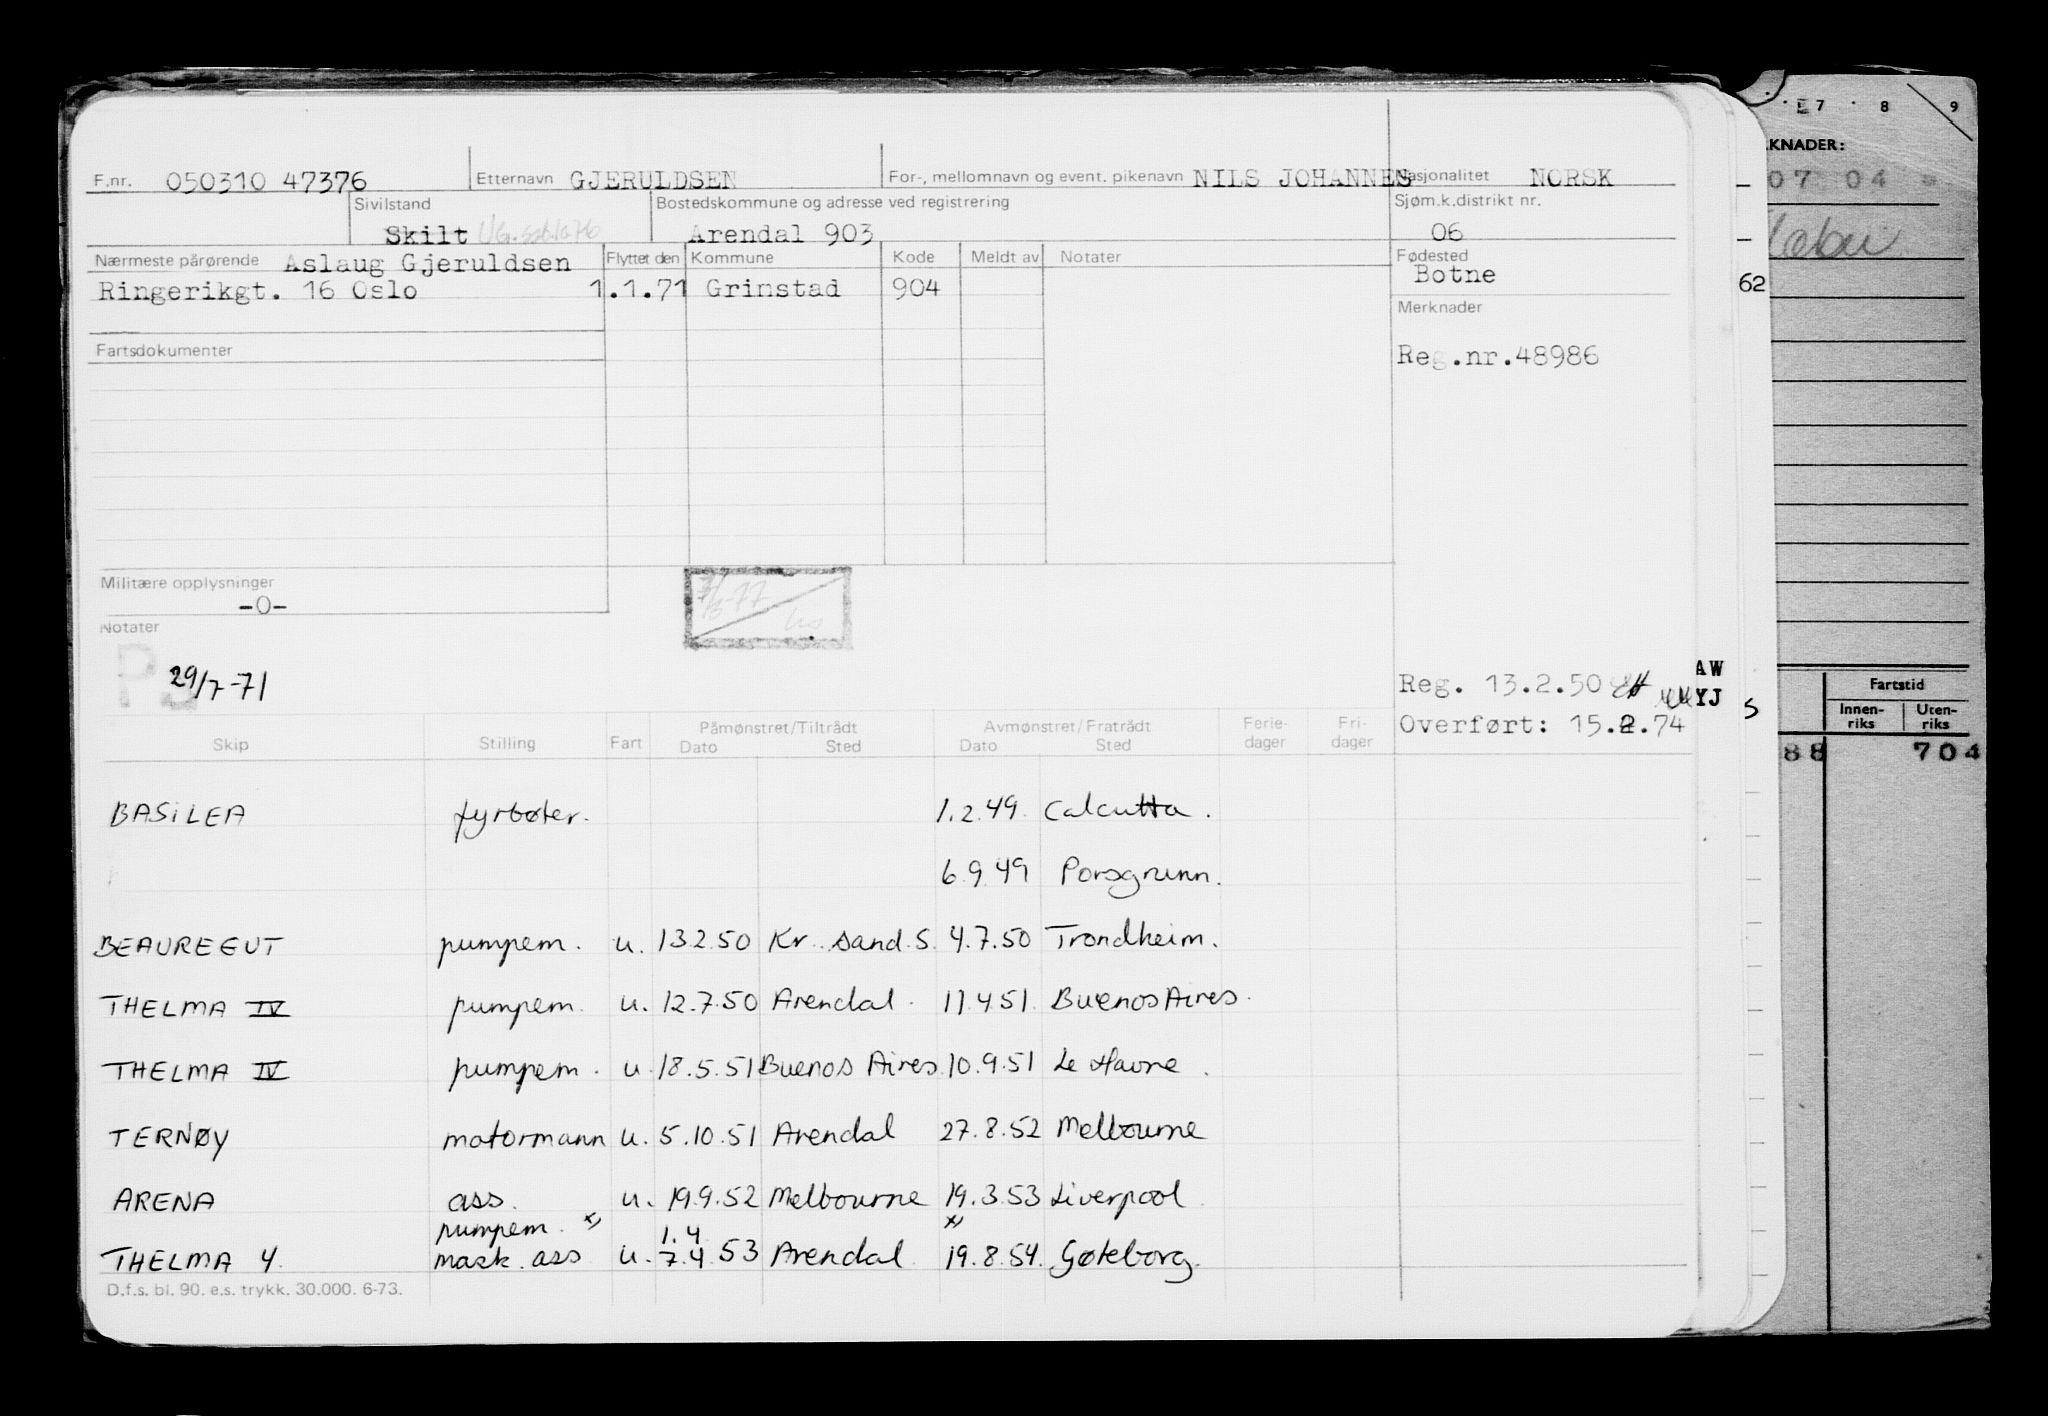 F.nr. 050310 47376 Etternavn GJERULDSEN For-, mellomnavn og event. pikenavn NILS JOHANNES Nasjonalitet NORSK
Sivilstand Bostedskommune og adresse ved registrering Sjøm.k.distrikt nr.
Skilt Arendal 903 06
Nærmeste pårørende Aslaug Gjeruldsen Flyttet den Kommune Kode Meldt av Notater Fødested
Botne
Ringerikgt. 16 Oslo 1.1.71 Grinstad 904
Merknader
Fartsdokumenter Reg.nr.48986
Militære opplysninger
-0-
7/3-77
Notater
29/7-71
Reg. 13.2.50
Overført: 15.2.74
Påmønstret/Tiltrådt Avmønstret/Fratrådt Ferie- Fri-
Skip Stilling Fart Dato Sted Dato Sted dager dager
BASILEA fyrbøter. 1.2.49. Calcutta.
6.9.49 Porsgrunn.
BEAUREGUT pumpem. u. 13.2.50 Kr. sand. S. 4.7.50 Trondheim.
THELMA IV pumpem. u. 12.7.50 Arendal. 11.4.51. Buenos Aires.
THELMA IV pumpem. u. 18.5.51 Buenos Aires 10.9.51 Le Havre.
TERNØY motormann u. 5.10.51 Arendal 27.8.52 Melbourne
ARENA ass. u. 19.9.52 Melbourne 19.3.53 Liverpool
pumpem. x) 1.4 x)
THELMA 4. mask. ass u. 7.4 53 Arendal. 19.8.54. Gøteborg.
D.f.s. bl. 90. e.s. trykk. 30.000. 6-73.
AW
YJ
62
S
7 8 9
KNADER:
07 04
Fartstid
Innen-riks Uten-riks
88 704